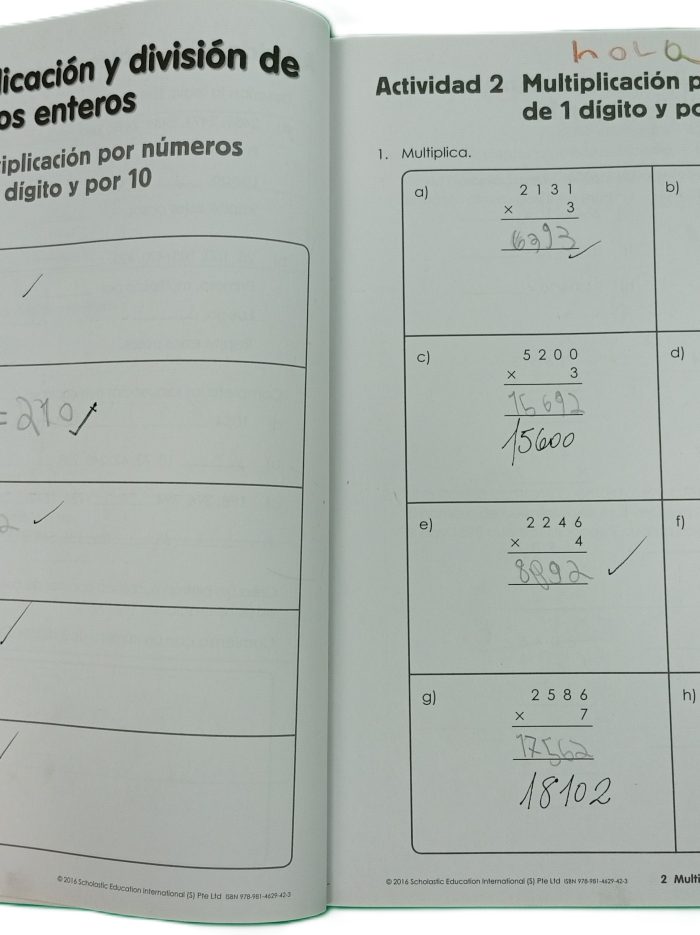 licación y división de
os enteros
iplicación por números
dígito y por 10
= 210
2
© 2016 Scholastic Education International (S) Pte Ltd ISBN 978-981-4629-42-3
hola
Actividad 2 Multiplicación p
de 1 dígito y po
1. Multiplica.
a) 2 1 3 1
× 3
6393
b)
c) 5 2 0 0
× 3
15692
15600
d)
e) 2 2 4 6
× 4
8892
f)
g) 2 5 8 6
× 7
17562
18102
h)
© 2016 Scholastic Education International (S) Pte Ltd ISBN 978-981-4629-42-3 2 Multi